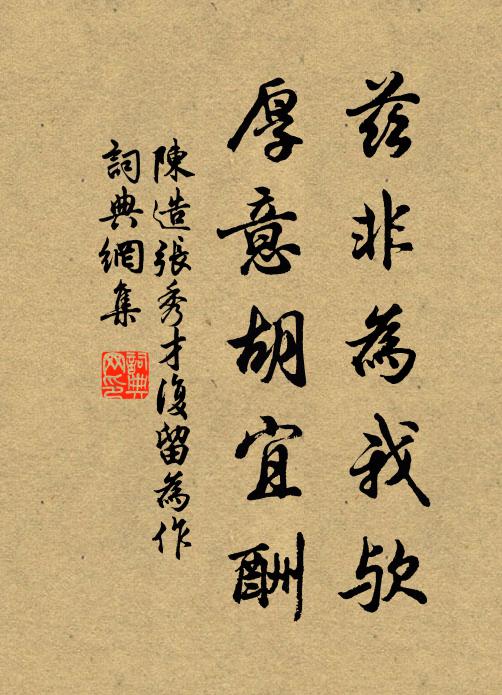 茲非為我歟
厚意胡宜酬
陳造張秀才復留為作
詞典網集
詞典网印